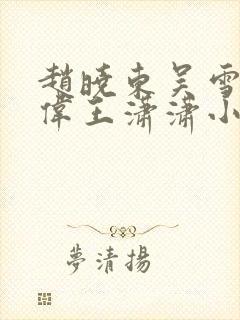 趙曉東吳雪
偉王瀟瀟小
夢清揚